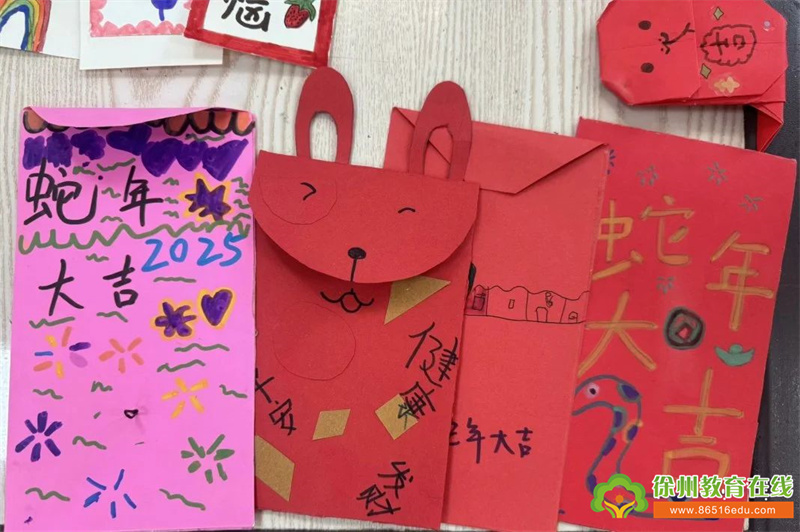 恼
吉
蛇年
2025
大吉
健康
平安
发财
年大吉
蛇年
大吉
徐州教育在线
www.86516edu.com